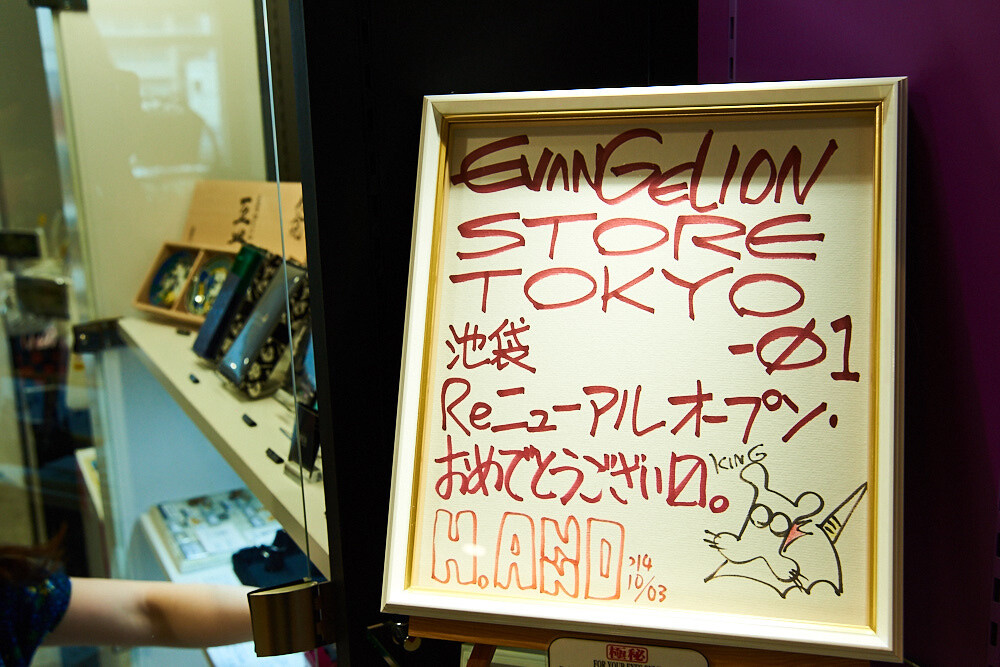 EVANGELION
STORE
TOKYO
池袋 -01
Reニューアルオープン・
おめでとうござい〼。
KING
H.AND
'14
10/03
極秘
FOR YOUR EYES